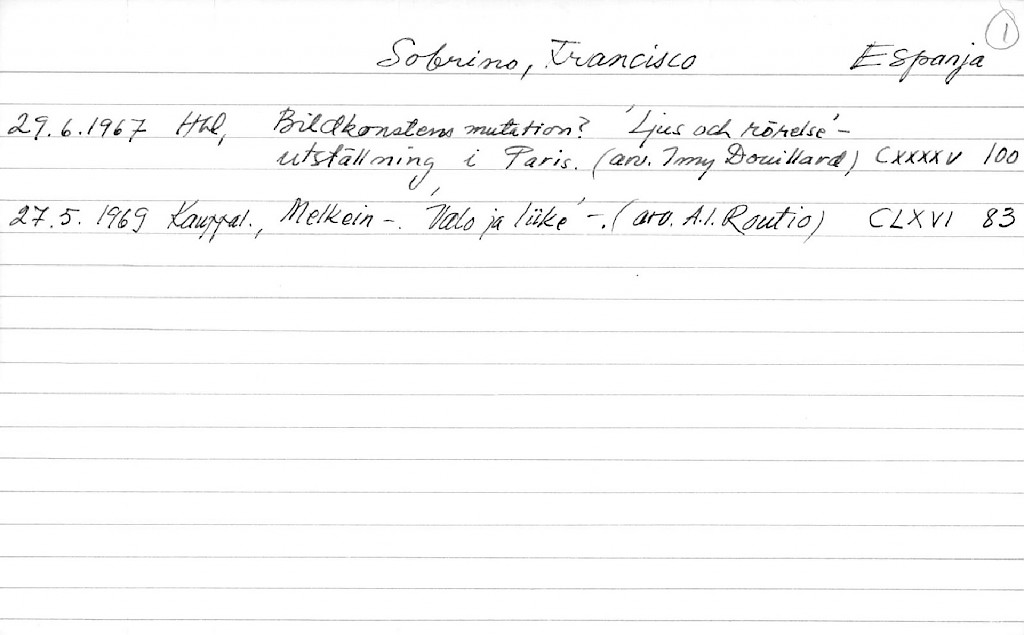 1
Sobrino, Francisco Espanja
29.6.1967 Hbl, Bildkonstens mutation? 'Ljus och rörelse'-
utställning i Paris. (arv. Imy Douillard) CXXXXV 100
27.5.1969 Kauppal., Melkein -. 'Valo ja liike' -. (arv. A.I. Routio) CLXVI 83